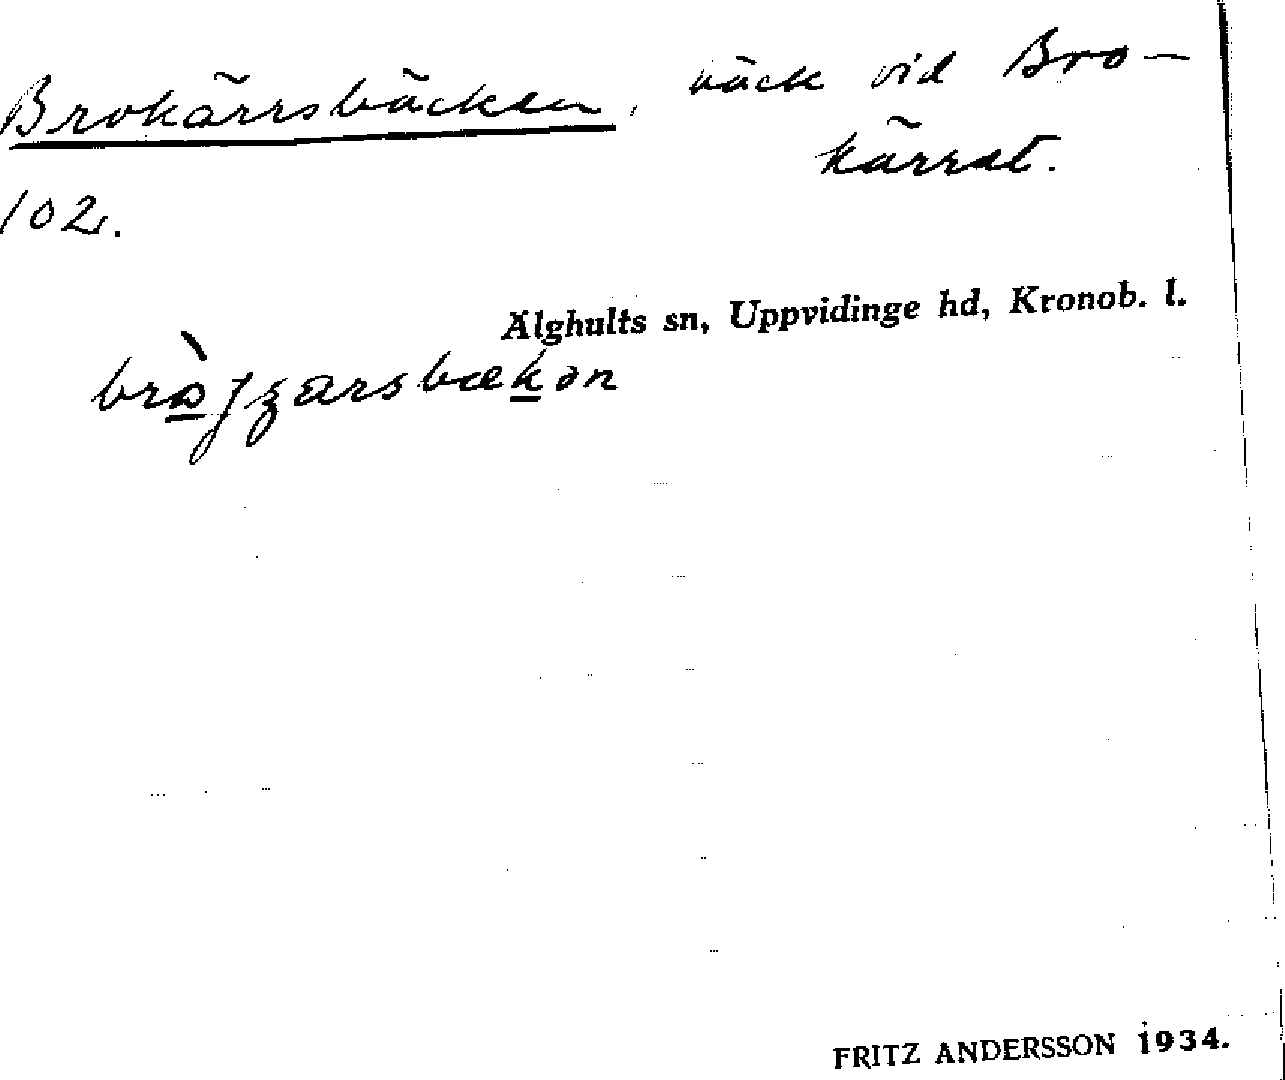 Brokärrsbäcken, bäck vid Bro-
kärret.
102.
Älghults sn, Uppvidinge hd, Kronob. l.
FRITZ ANDERSSON 1934.